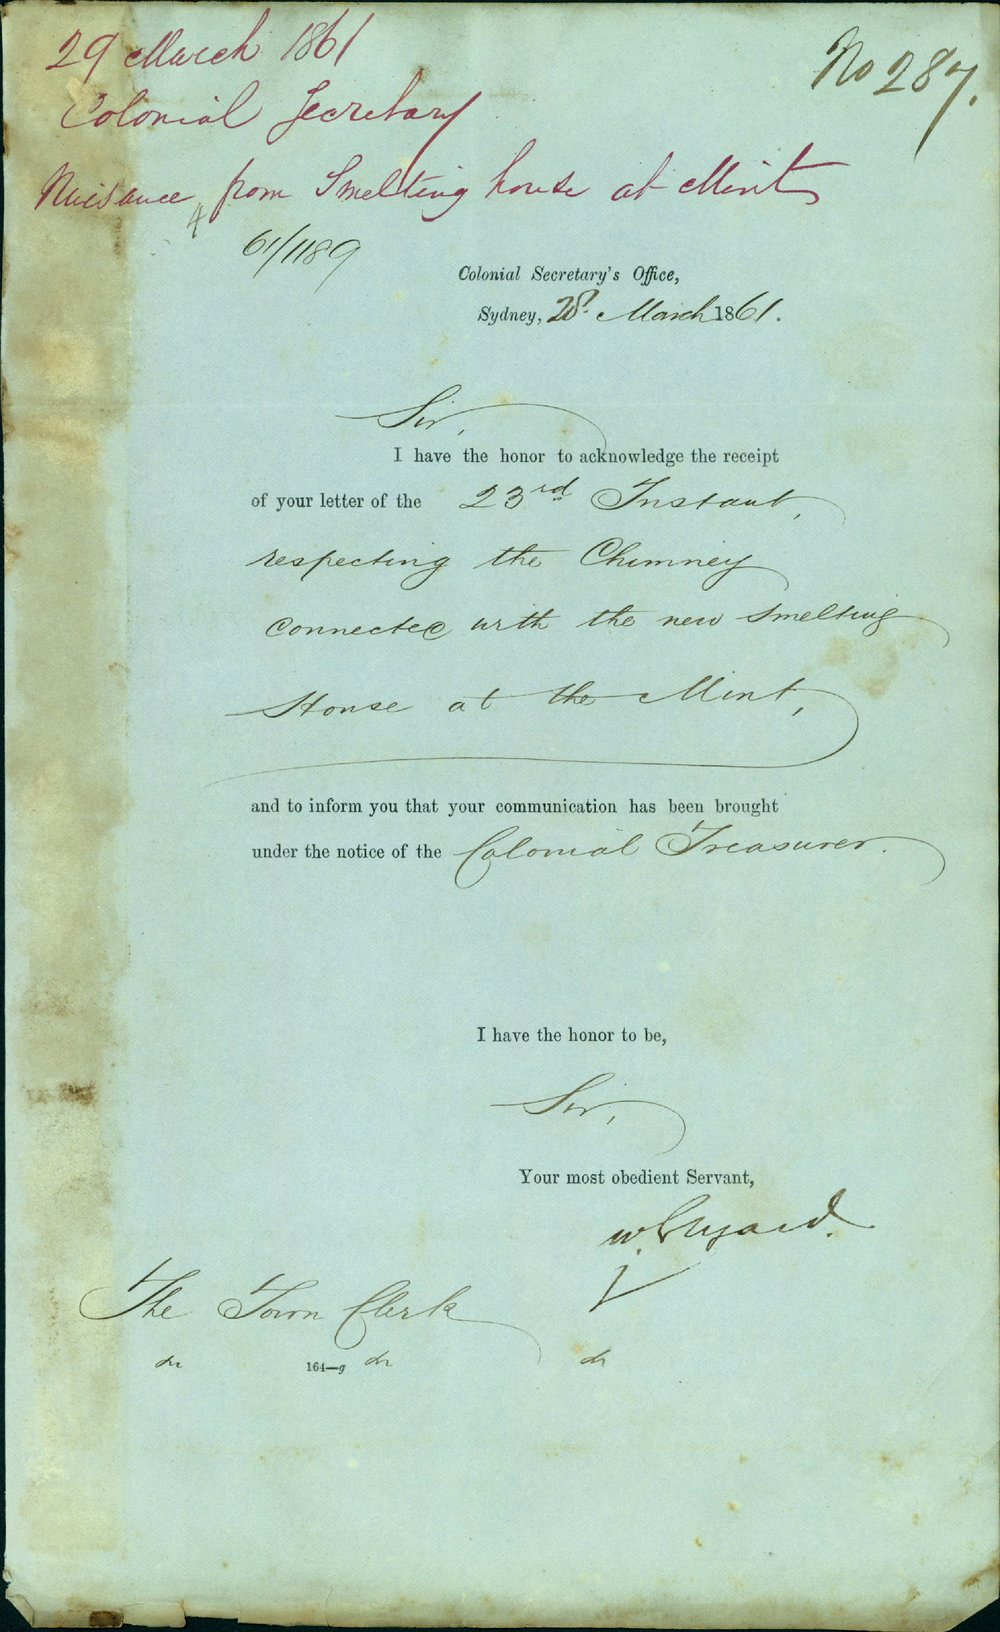 29 March 1861
No 287.
Colonial Secretary
Nuisance from Smelting house at Mint
4
61/1189
Colonial Secretary's Office,
Sydney, 28th March 1861.
Sir,
I have the honor to acknowledge the receipt
of your letter of the 23rd Instant,
respecting the Chimney
connected with the new Smelting
House at the Mint,
and to inform you that your communication has been brought
under the notice of the Colonial Treasurer.
I have the honor to be,
Sir,
Your most obedient Servant,
W. Elyard.
The Town Clerk
164—g